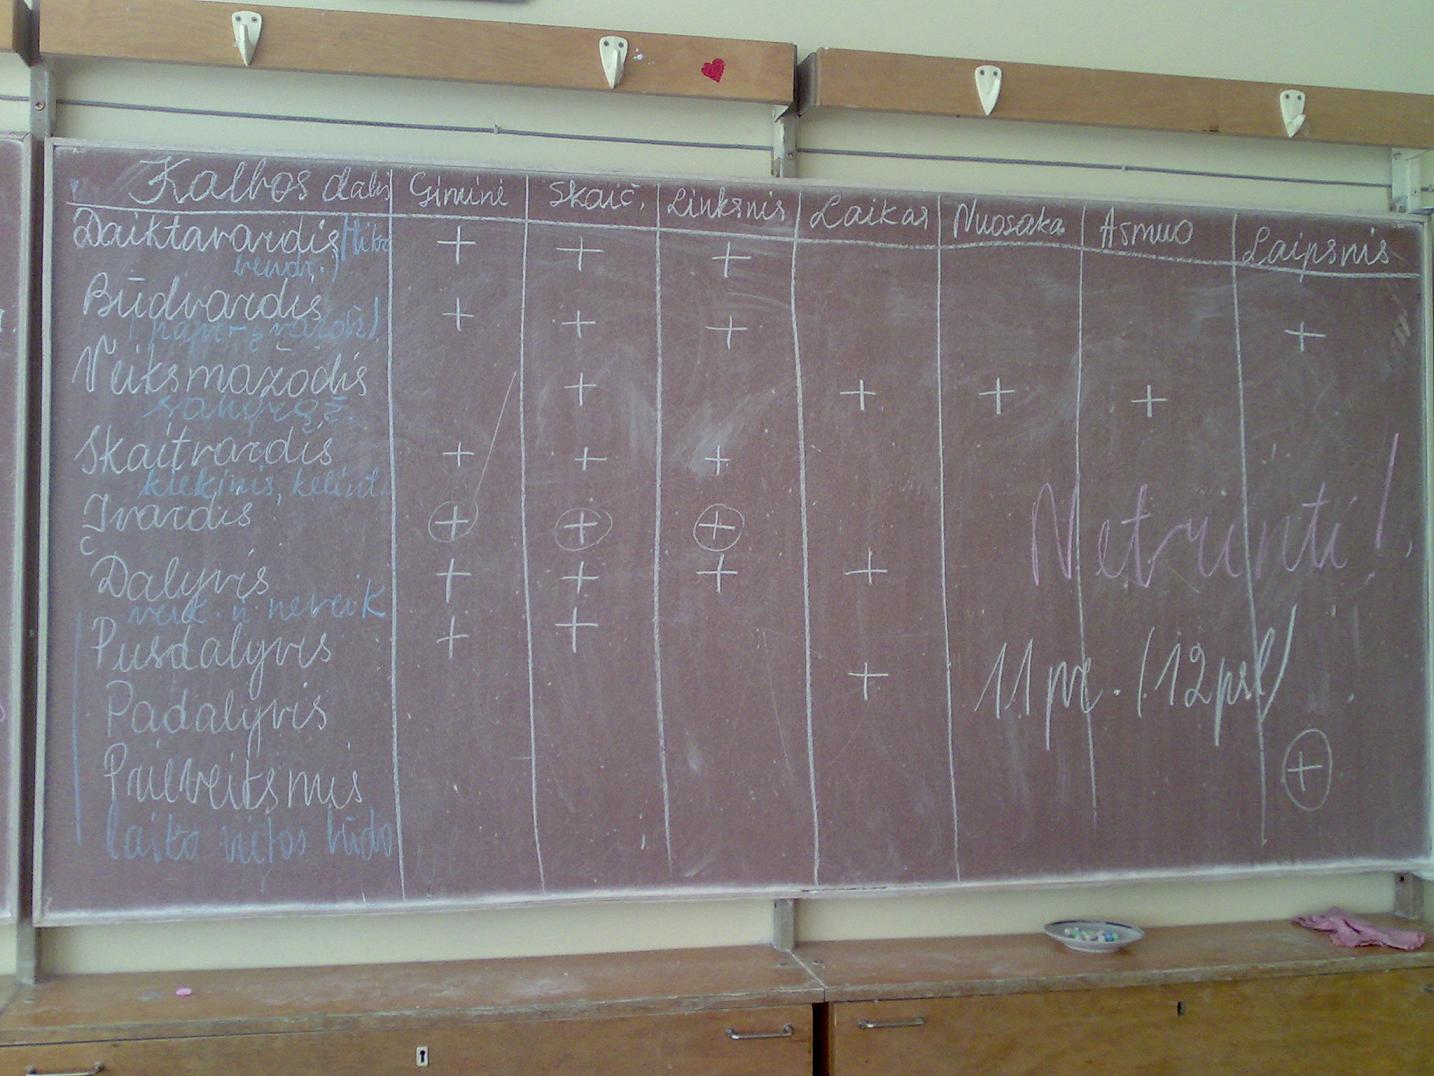 Kalbos dalis Giminė Skaič. Linksnis Laikas Nuosaka Asmuo Laipsnis
Daiktavardis (tikr. + + +
bendr.)
Būdvardis + + + +
Veiksmažodis + + + +
sangrąž.
Skaitvardis + + +
kiekinis, kelint.
Įvardis + + +
Dalyvis + + + +
veik. ir neveik
Pusdalyvis + +
Padalyvis +
Prieveiksmis +
laiko vietos būdo
Netrinti!
11 pr. (12 psl)